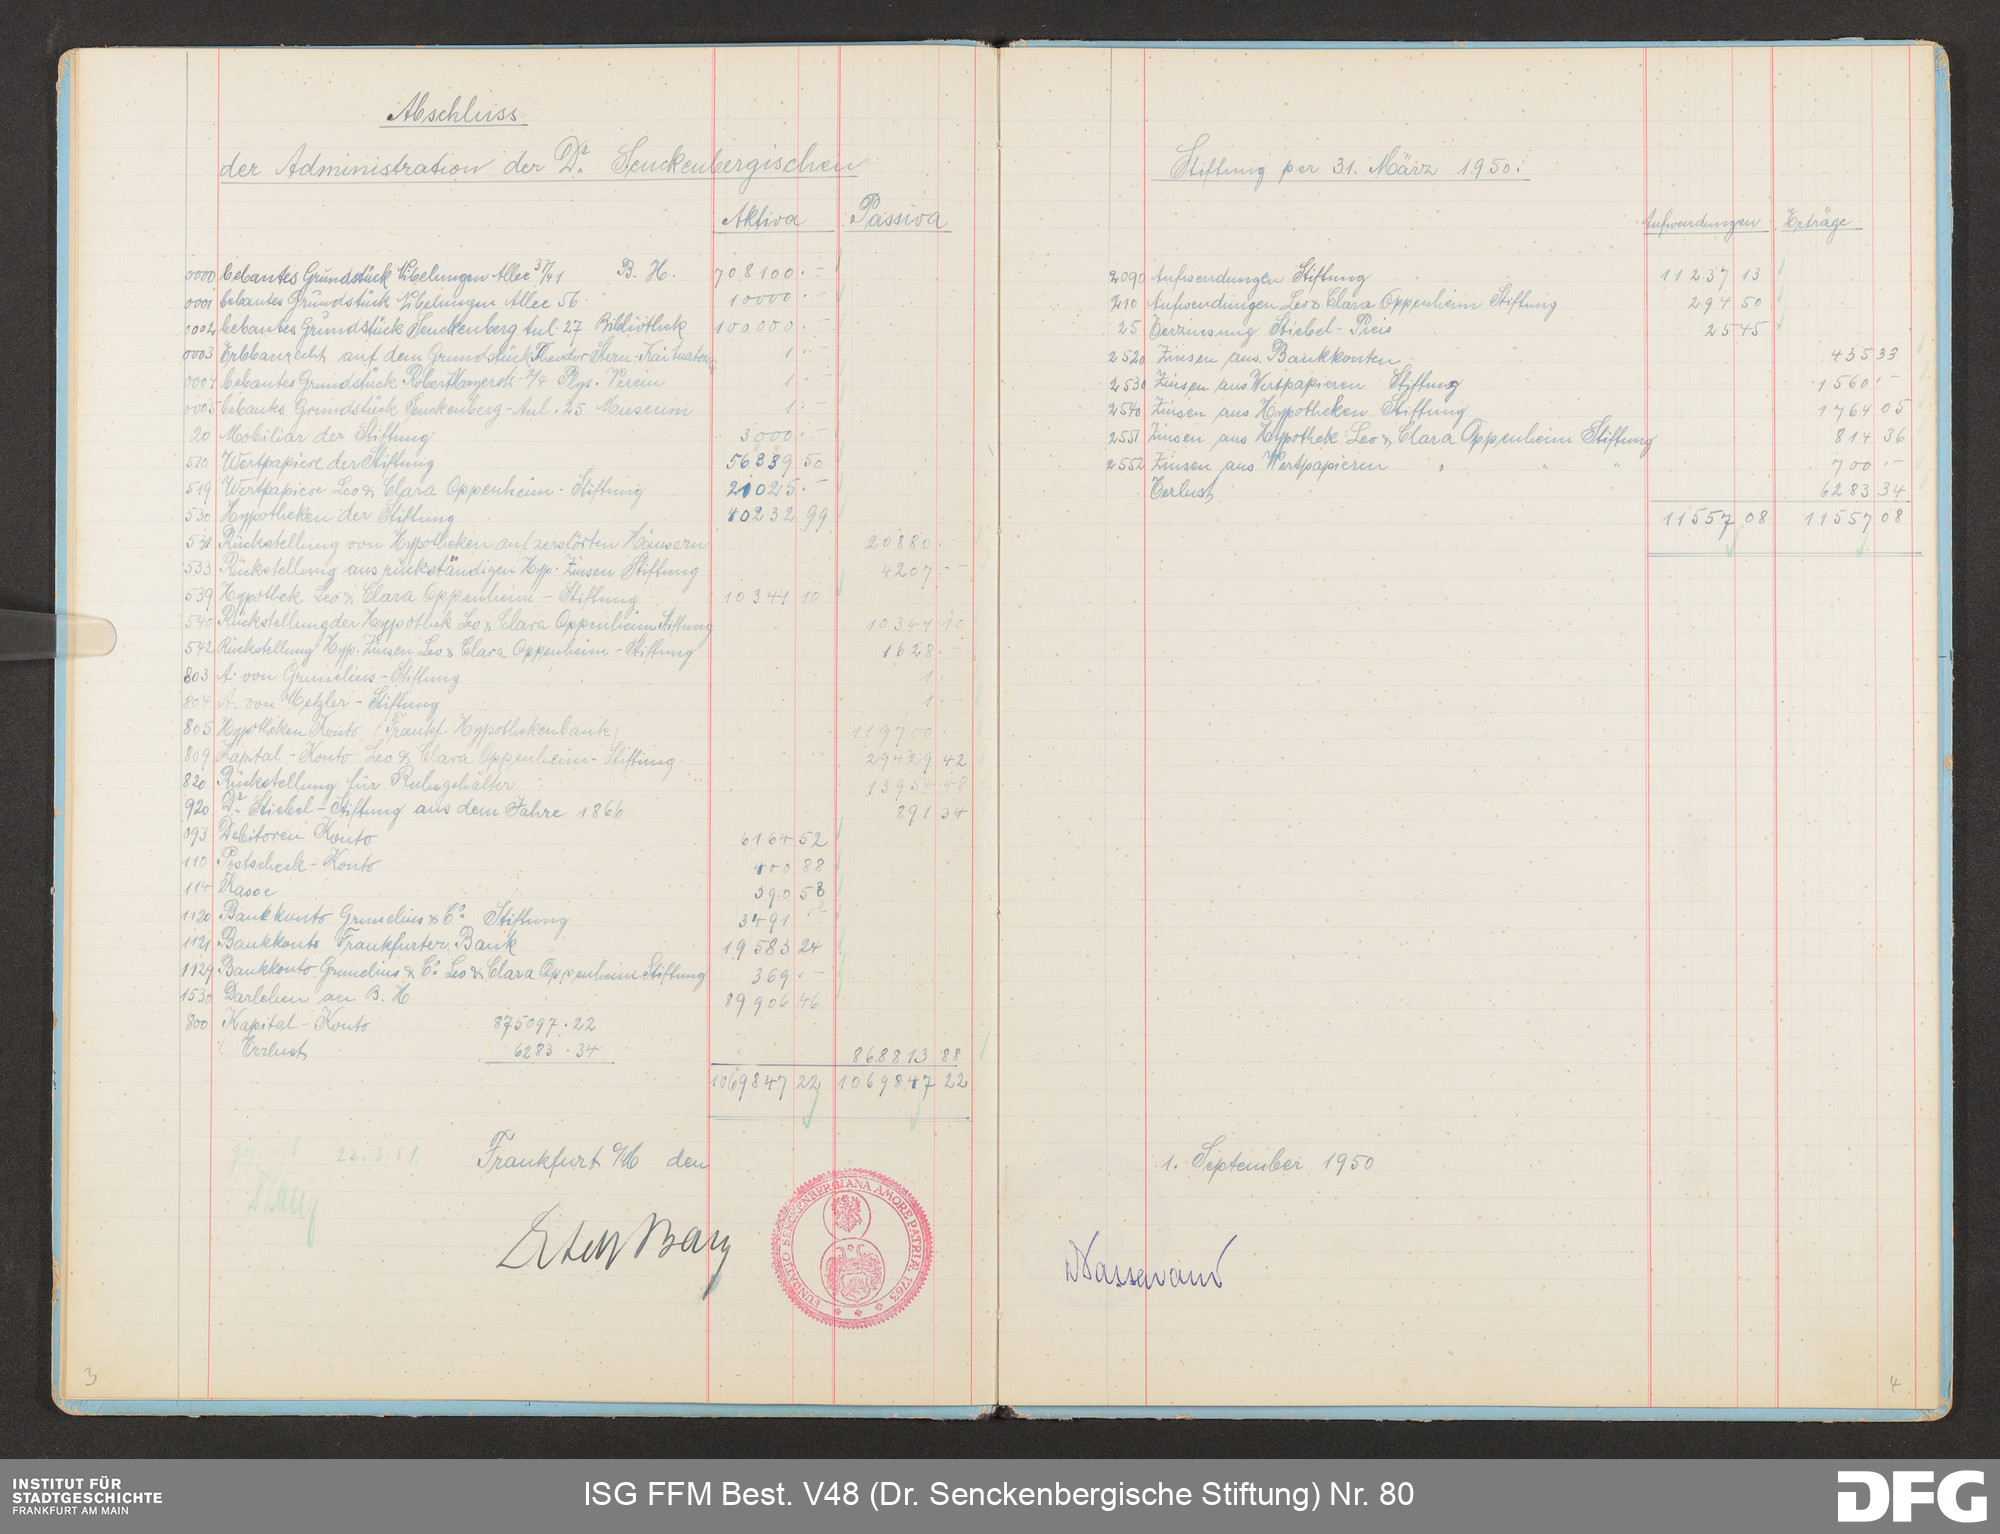 Abschluss
der Administration der Dr. Senckenbergischen
Aktiva Passiva
0000 bebautes Grundstück Nibelungen Allee 37/41 B. H. 708100.-
0001 bebautes Grundstück Nibelungen Allee 56 10000.-
0002 bebautes Grundstück Senckenberg Anl. 27 Bibliothek 100000.-
0003 Erbbaurecht auf dem Grundstück Theodor Stern-Kai 1.-
0004 bebautes Grundstück Robert Mayerstr. 2/4 Phys. Verein 1.-
0005 bebautes Grundstück Senckenberg-Anl. 25 Museum 1.-
20 Mobiliar der Stiftung 3000.-
510 Wertpapiere der Stiftung 56339 50
519 Wertpapiere Leo & Clara Oppenheim-Stiftung 21025.-
530 Hypotheken der Stiftung 40232 99
531 Rückstellung von Hypotheken auf zerstörten Häusern 20880.-
533 Rückstellung aus rückständigen Hyp. Zinsen Stiftung 4207.-
539 Hypothek Leo & Clara Oppenheim-Stiftung 10341 10
540 Rückstellung der Hypothek Leo & Clara Oppenheim Stiftung 10341 10
542 Rückstellung Hyp. Zinsen Leo & Clara Oppenheim-Stiftung 1628.-
803 A. von Grunelius-Stiftung 1.-
804 A. von Metzler-Stiftung 1.-
805 Hypotheken Konto (Frankf. Hypothekenbank) 119700
809 Kapital-Konto Leo & Clara Oppenheim-Stiftung 29429 42
820 Rückstellung für Ruhegehälter 13954 48
920 Dr. Stiebel-Stiftung aus dem Jahre 1866 891 34
093 Debitoren Konto 6164 52
110 Postscheck-Konto 400 88
114 Kasse 390 53
1120 Bankkonto Grunelius & Co. Stiftung 3491.-
1121 Bankkonto Frankfurter Bank 19583 24
1129 Bankkonto Grunelius & Co. Leo & Clara Oppenheim Stiftung 369.-
1530 Darlehen an B. H 89906 46
800 Kapital-Konto 875097.22
Verlust 6283.34 868813 88
1069847 22 1069847 22
geprüft 22.3.51.
Frankfurt a/M den
FUNDATIO SENCKENBERGIANA AMORE PATRIAE 1763
3
Stiftung per 31. März 1950.
Aufwendungen Erträge
2090 Aufwendungen Stiftung 11237 13
210 Aufwendungen Leo & Clara Oppenheim Stiftung 294 50
25 Verzinsung Stiebel-Preis 25 45
2520 Zinsen aus Bankkonten 435 33
2530 Zinsen aus Wertpapieren Stiftung 1560.-
2540 Zinsen aus Hypotheken-Stiftung 1764 05
2551 Zinsen aus Hypothek Leo & Clara Oppenheim Stiftung 814 36
2552 Zinsen aus Wertpapieren " " " 700.-
Verlust 6283 34
11557 08 11557 08
1. September 1950
4
INSTITUT FÜR
STADTGESCHICHTE
FRANKFURT AM MAIN
ISG FFM Best. V48 (Dr. Senckenbergische Stiftung) Nr. 80
DFG